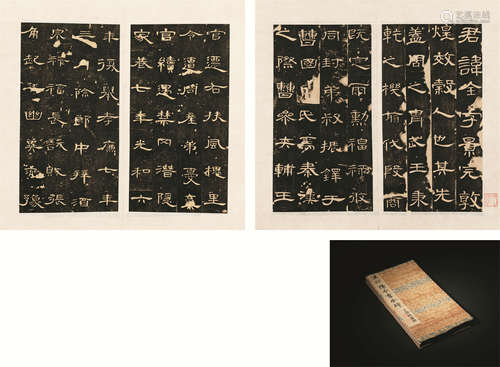 君諱全字景完敦
煌效穀人也其先
蓋周之胄武王秉
乾之機翦伐殷商
既定爾勳福祿攸
同封弟叔振鐸于
曹國氏焉秦漢
之際曹參夾輔王
官遷右扶風槐里
令遭同產弟憂棄
官續遇禁网潛隱
家巷七年光和六
年復舉孝廉七年
三月除郎中拜酒
泉祿福長訞賊張
角起兵幽冀兗豫